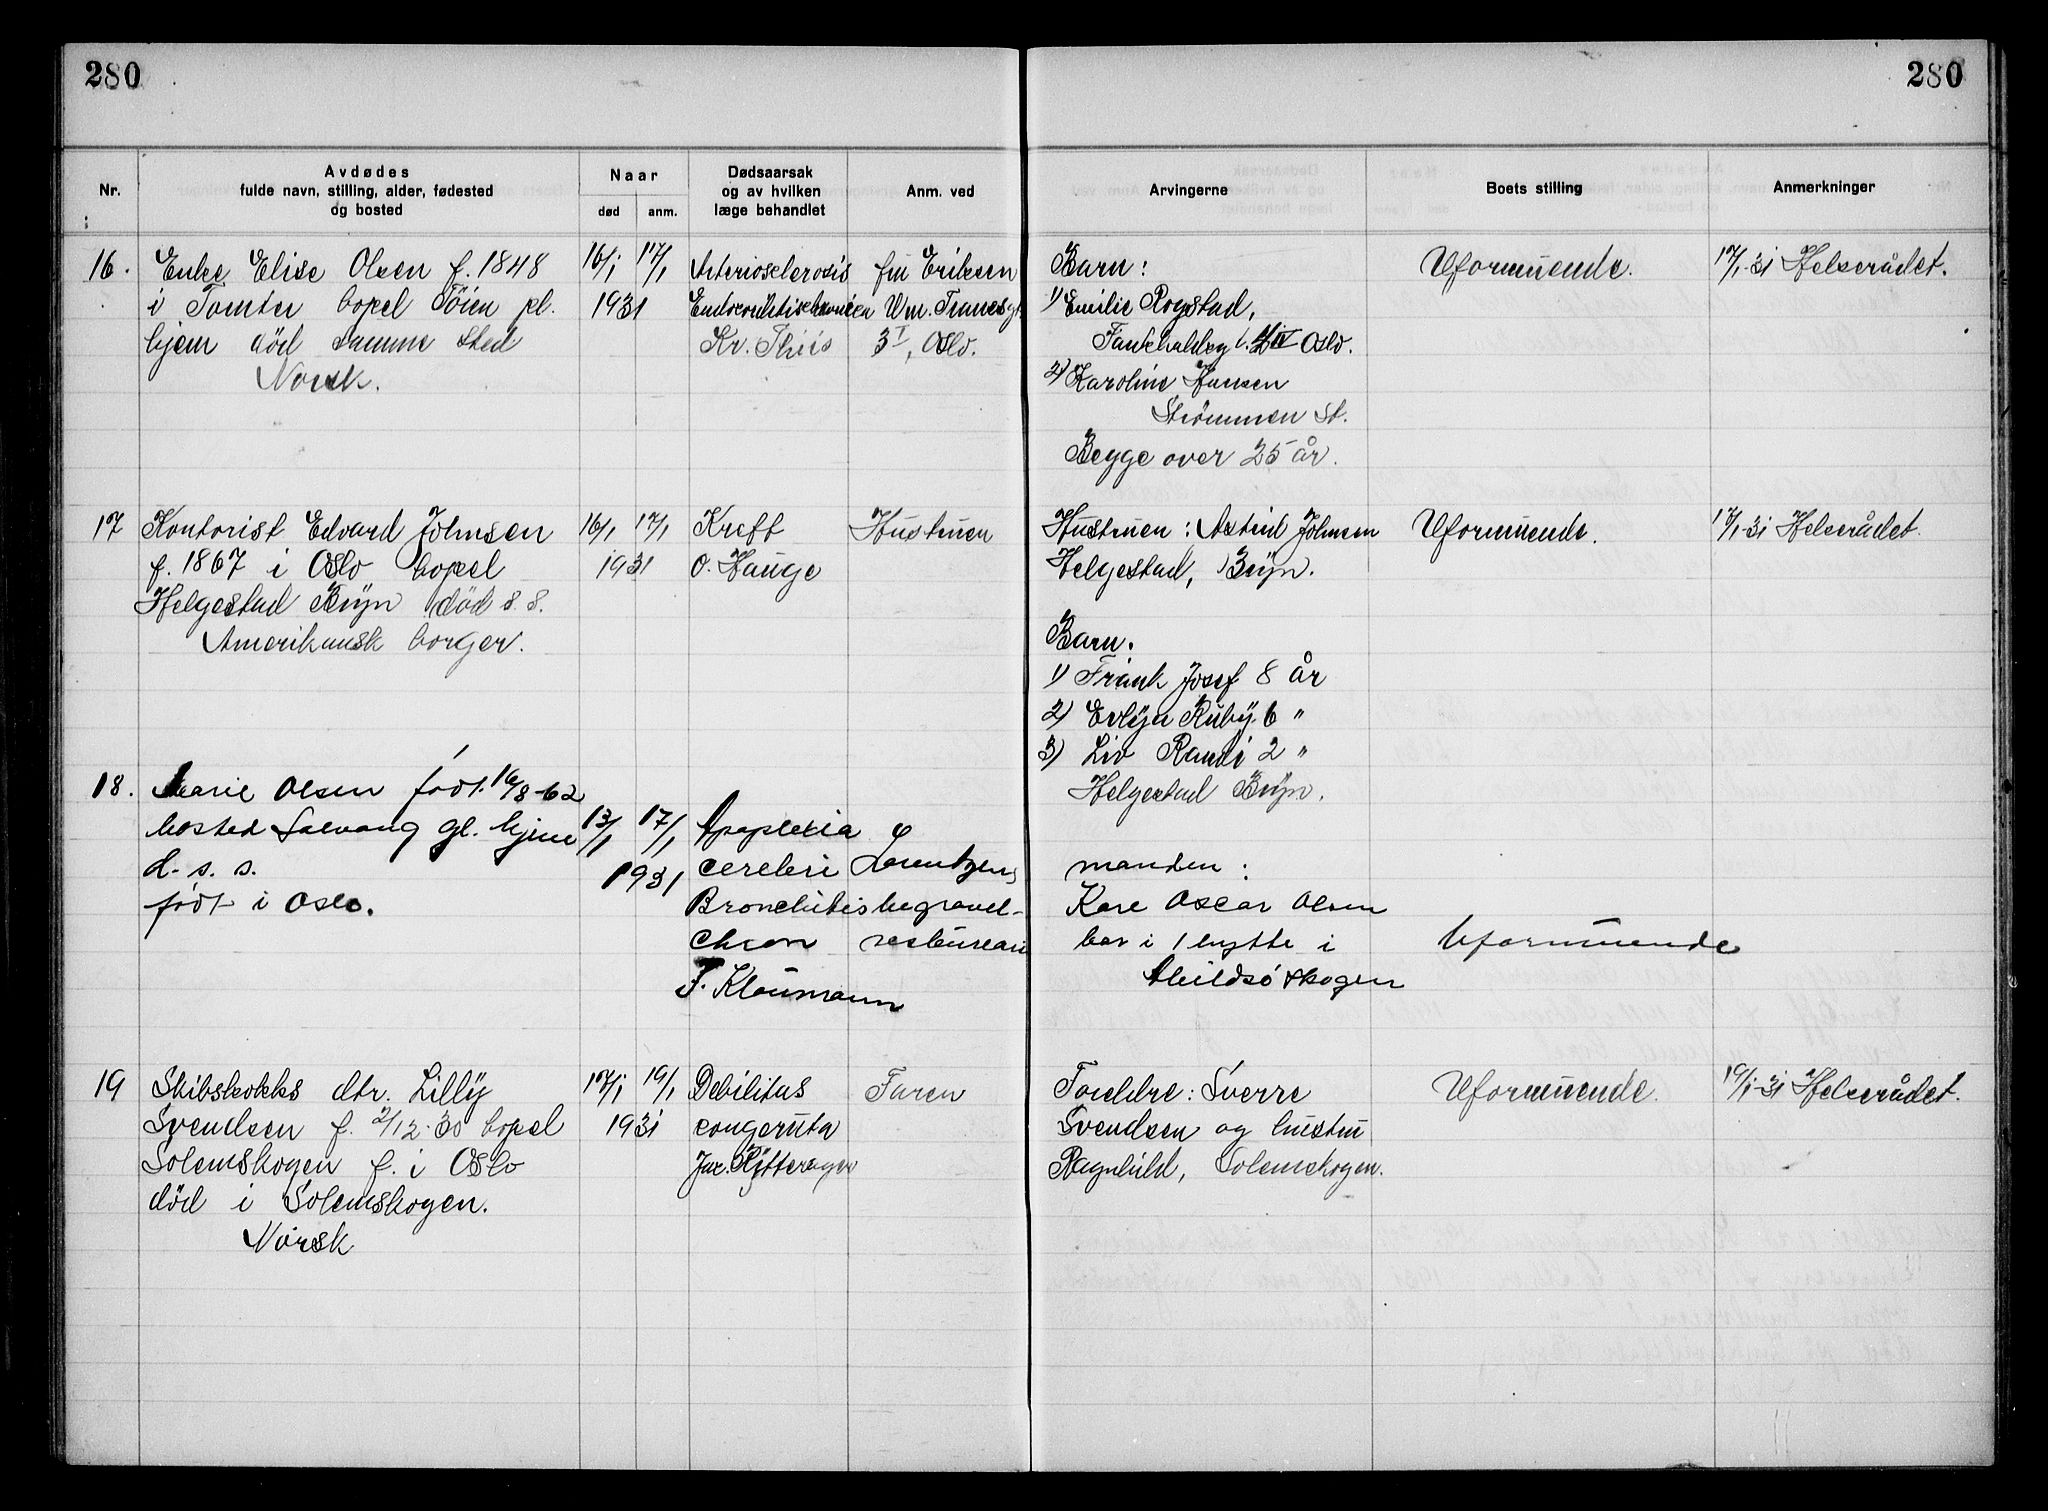 280
280
Nr.
Avdødes
fulde navn, stilling, alder, fødested
og bosted
Naar
død
anm.
Dødsaarsak
og av hvilken
læge behandlet
Anm. ved
Arvingerne
Boets stilling
Anmerkninger
16.
Enke Elise Olsen f. 1848
i Tomter bopel Töien pl.
hjem död samme sted
Norsk.
16/1 17/1
1931
Arteriosclerosis
Kr. Thiis
fru Eriksen
3 I, Oslo.
Barn:
1) Emilie Rogstad,
Oslo.
2) Karoline Hansen
Strömmen St.
Begge over 25 år.
Uformuende.
17/1-31 Helserådet.
17
Kontorist Edvard Johnsen
f. 1867 i Oslo bopel
Helgestad Bryn död s. s.
Amerikansk borger.
16/1 17/1
1931
Kreft
O. Hauge
Hustruen
Hustruen: Astrid Johnsen
Helgestad, Bryn.
Barn.
1) Frank Josef 8 år
2) Evlyn Ruby 6 "
3) Liv Randi 2 "
Helgestad Bryn.
Uformuende.
17/1-31 Helserådet.
18.
Marie Olsen født 16/8-62
bosted Solvang gl. hjem
d. s. s.
født i Oslo.
13/1 17/1
1931
Apoplexia
cerebri
Bronchitis
chron
F. Klaumann
Lorentzens
begravel-
sesbureau
manden:
Kare Oscar Olsen
bor i 1 hytte i
Abildsö skogen
Uformuende
19
Skibskokks dtr. Lilly
Svendsen f. 2/12-30 bopel
Solemskogen f. i Oslo
död i Solemskogen.
Norsk
17/1 19/1
1931
Debilitas
congenita
Faren
Foreldre: Sverre
Svendsen og hustru
Ragnhild, Solemskogen.
Uformuende.
19/1-31 Helserådet.